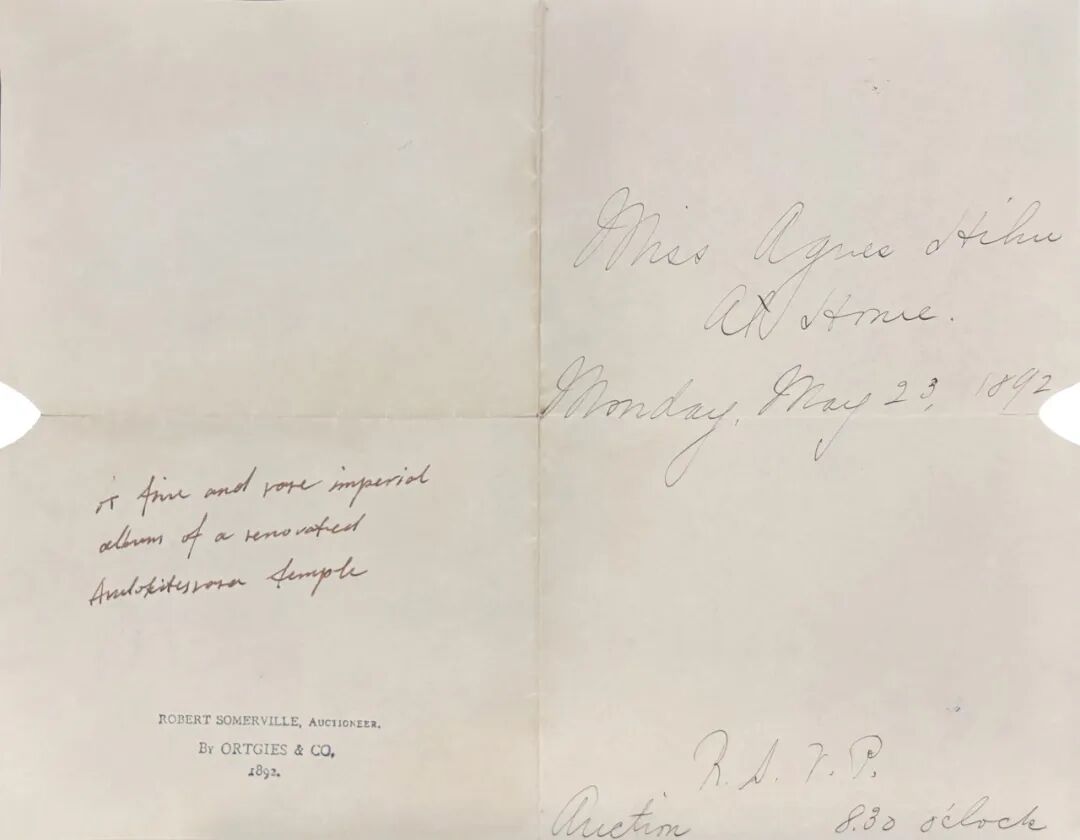 a fine and rare imperial
album of a renovated
temple
ROBERT SOMERVILLE, AUCTIONEER.
By ORTGIES & CO.
1892.
Miss Agnes
At Home.
Monday, May 23, 1892
R. S. V. P.
Auction 8.30 o'clock